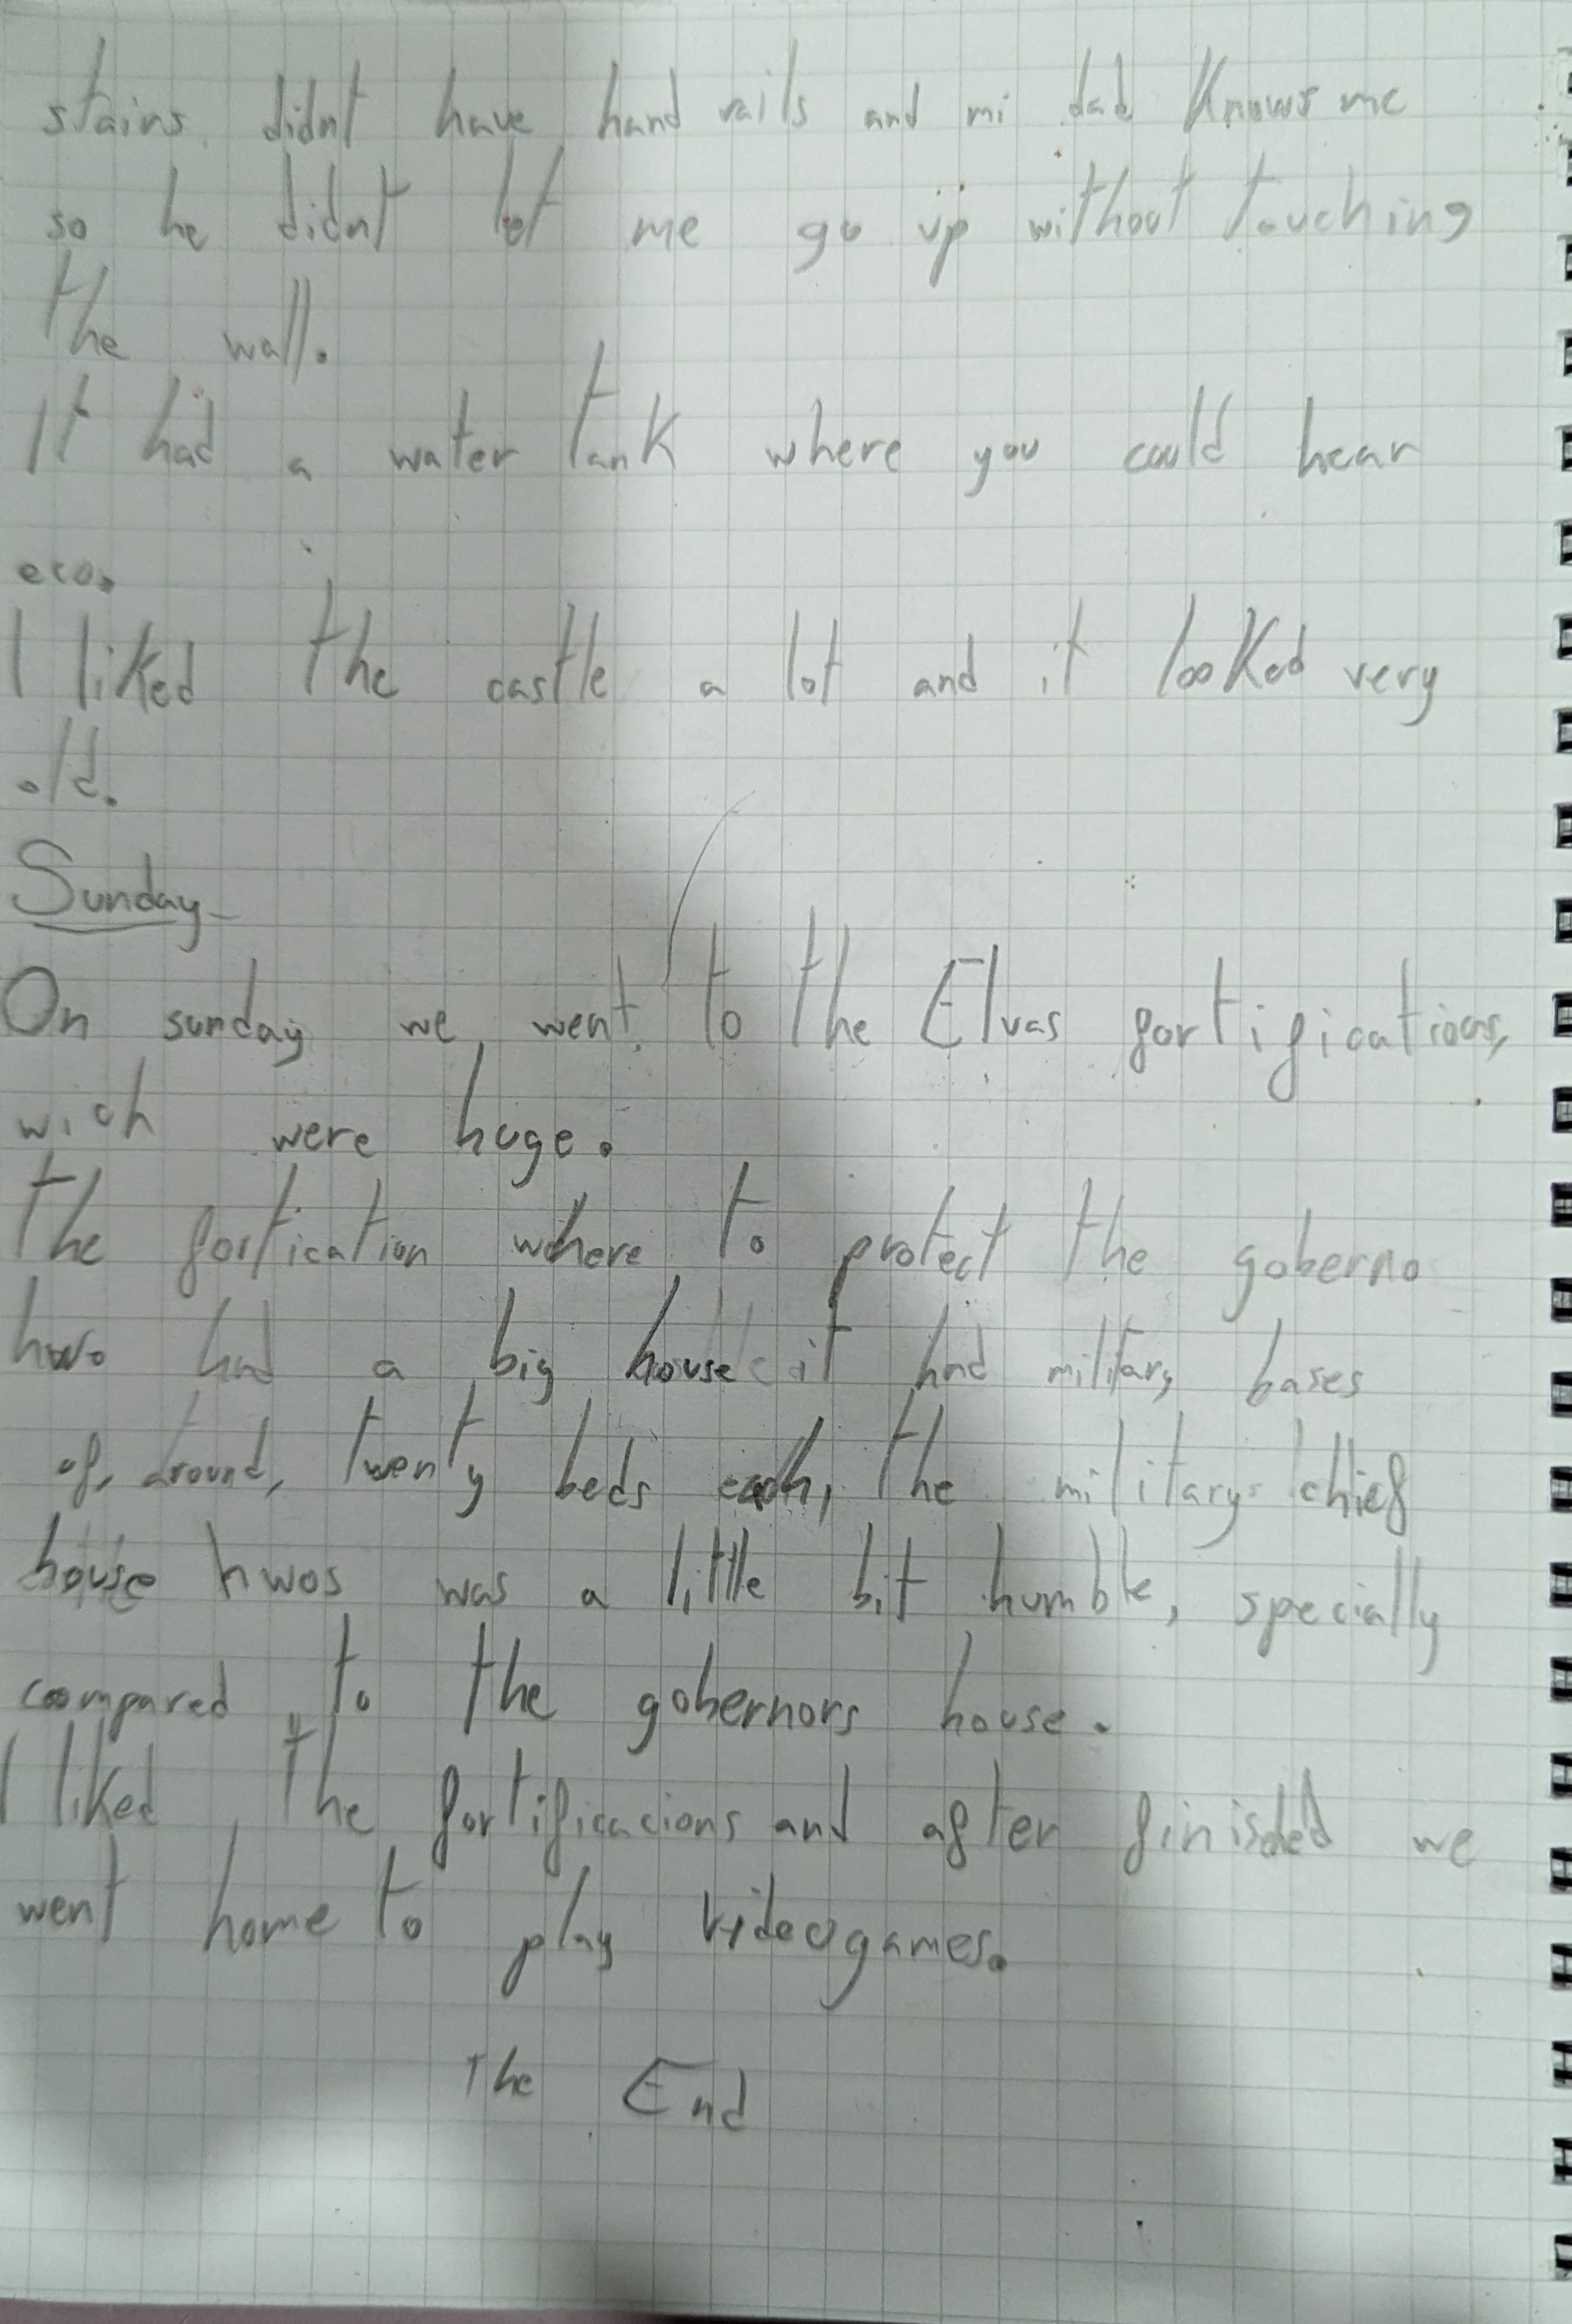 stairs didnt have hand rails and mi dad Knows me
so he didnt let me go up without touching
the wall.
It had a water tank where you could hear
eco.
I liked the castle a lot and it looked very
old.
Sunday
On sunday we went to the Elvas fortifications,
wich were huge.
The fortication where to protect the goberno
hwo had a big house it had military bases
of, around, twenty beds each, the military chief
house hwos was a little bit humble, specially
compared to the gobernors house.
I liked the fortificacions and after finished we
went home to play videogames.
The End